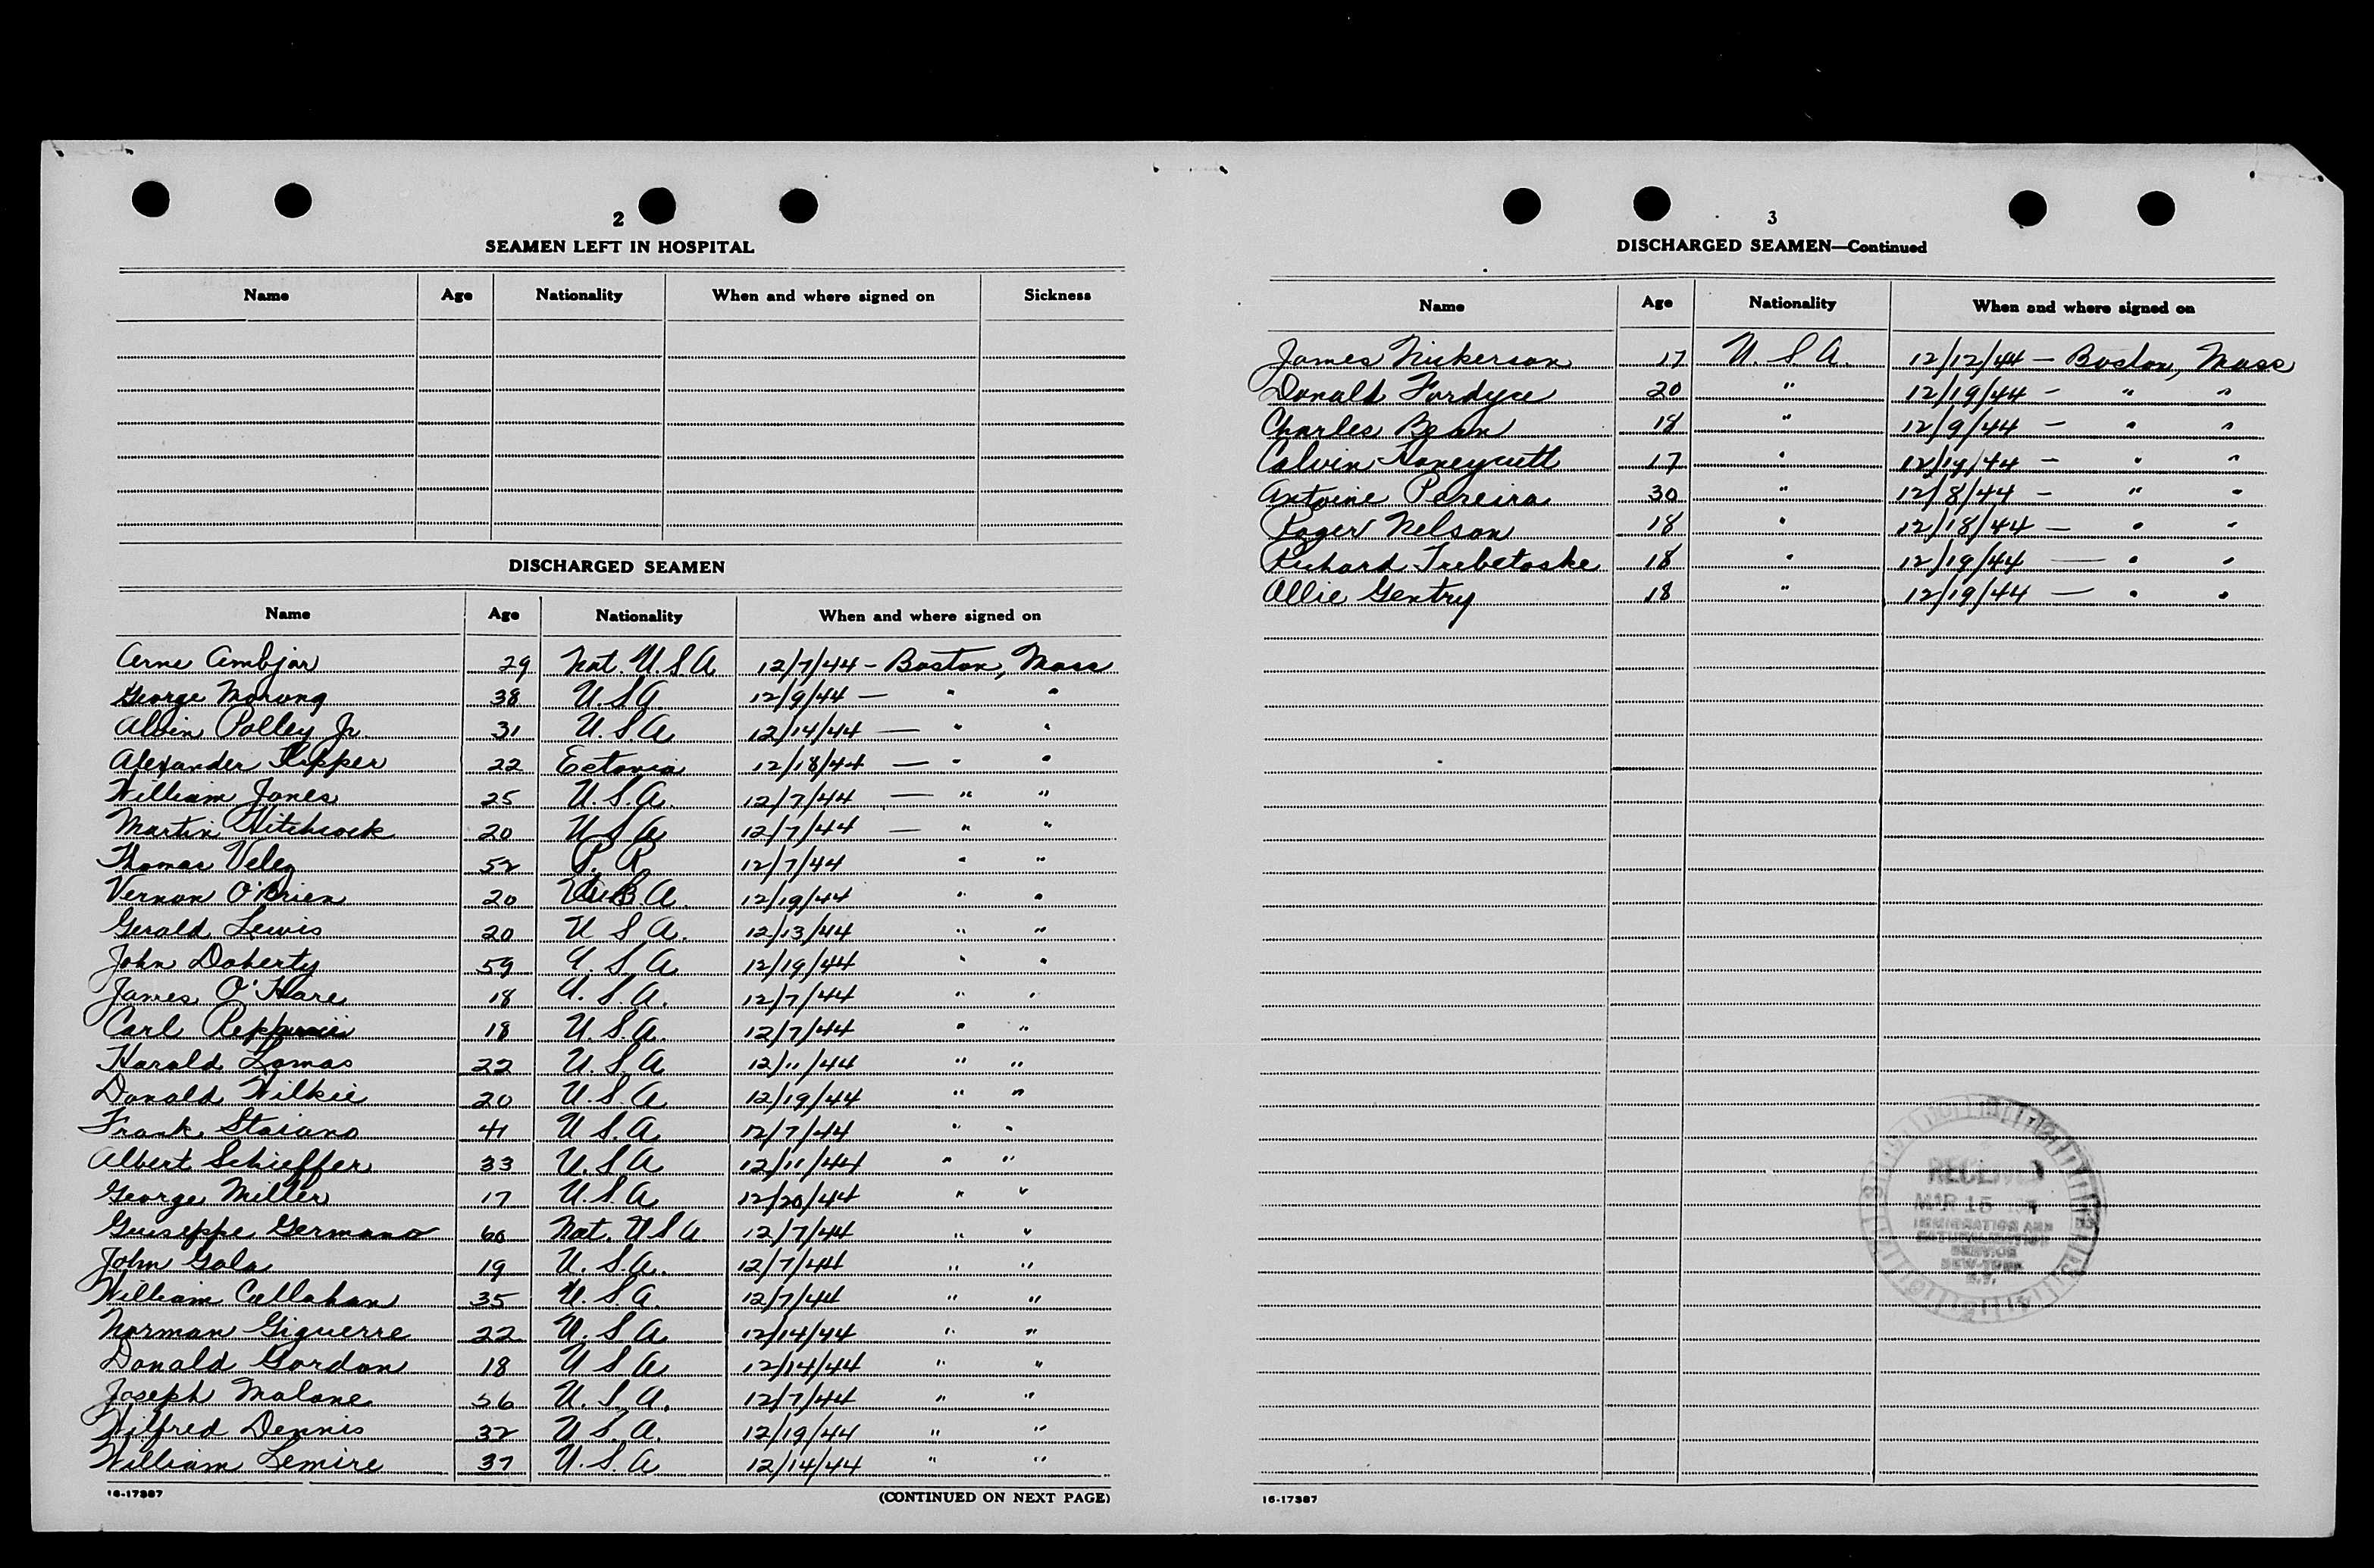 2
SEAMEN LEFT IN HOSPITAL
Name Age Nationality When and where signed on Sickness
DISCHARGED SEAMEN
Name Age Nationality When and where signed on
Arne Ambjor 29 Nat. U.S.A 12/7/44 - Boston, Mass
George Morong 38 U.S.A. 12/9/44 — " "
Alvin Polley Jr. 31 U.S.A 12/14/44 — " "
Alexander Kipper 22 Estonia 12/18/44 — " "
William Jones 25 U.S.A. 12/7/44 — " "
Martin Hitchcock 20 U.S.A 12/7/44 — " "
Thomas Velez 52 P. R. 12/7/44 " "
Vernon O'Brien 20 A. 12/19/44 " "
Gerald Lewis 20 U S A. 12/13/44 " "
John Doherty 59 U.S.A 12/19/44 " "
James O'Hare 18 U.S.A. 12/7/44 " "
Carl 18 U.S.A. 12/7/44 " "
Harold Lomas 22 U.S.A 12/11/44 " "
Donald Wilkie 20 U.S.A 12/19/44 " "
Frank Staiano 41 U S.A. 12/7/44 " "
Albert Schieffer 33 U.S.A 12/11/44 " "
George Miller 17 U.S.A 12/20/44 " "
Guiseppe Germano 60 Nat. U S A. 12/7/44 " "
John Gala 19 U.S.A. 12/7/44 " "
William Callahan 35 U.S.A. 12/7/44 " "
Norman Giguerre 22 U.S.A 12/14/44 " "
Donald Gordon 18 U S A 12/14/44 " "
Joseph Malone 56 U.S.A. 12/7/44 " "
Wilfred Dennis 32 U S.A. 12/19/44 " "
William Lemire 37 U.S.A 12/14/44 " "
16-17387 (CONTINUED ON NEXT PAGE)
3
DISCHARGED SEAMEN—Continued
Name Age Nationality When and where signed on
James Nickerson 17 U.S.A. 12/12/44 — Boston, Mass
Donald Fordyce 20 " 12/19/44 — " "
Charles Bean 18 " 12/9/44 — " "
Calvin Honeycutt 17 " 12/19/44 — " "
Antoine Pereira 30 " 12/8/44 — " "
Roger Nelson 18 " 12/18/44 — " "
Richard Trebetoske 18 " 12/19/44 — " "
Allie Gentry 18 " 12/19/44 — " "
RECEIVED
MAR 15
IMMIGRATION AND
NATURALIZATION
SERVICE
NEW YORK
N.Y.
16-17387